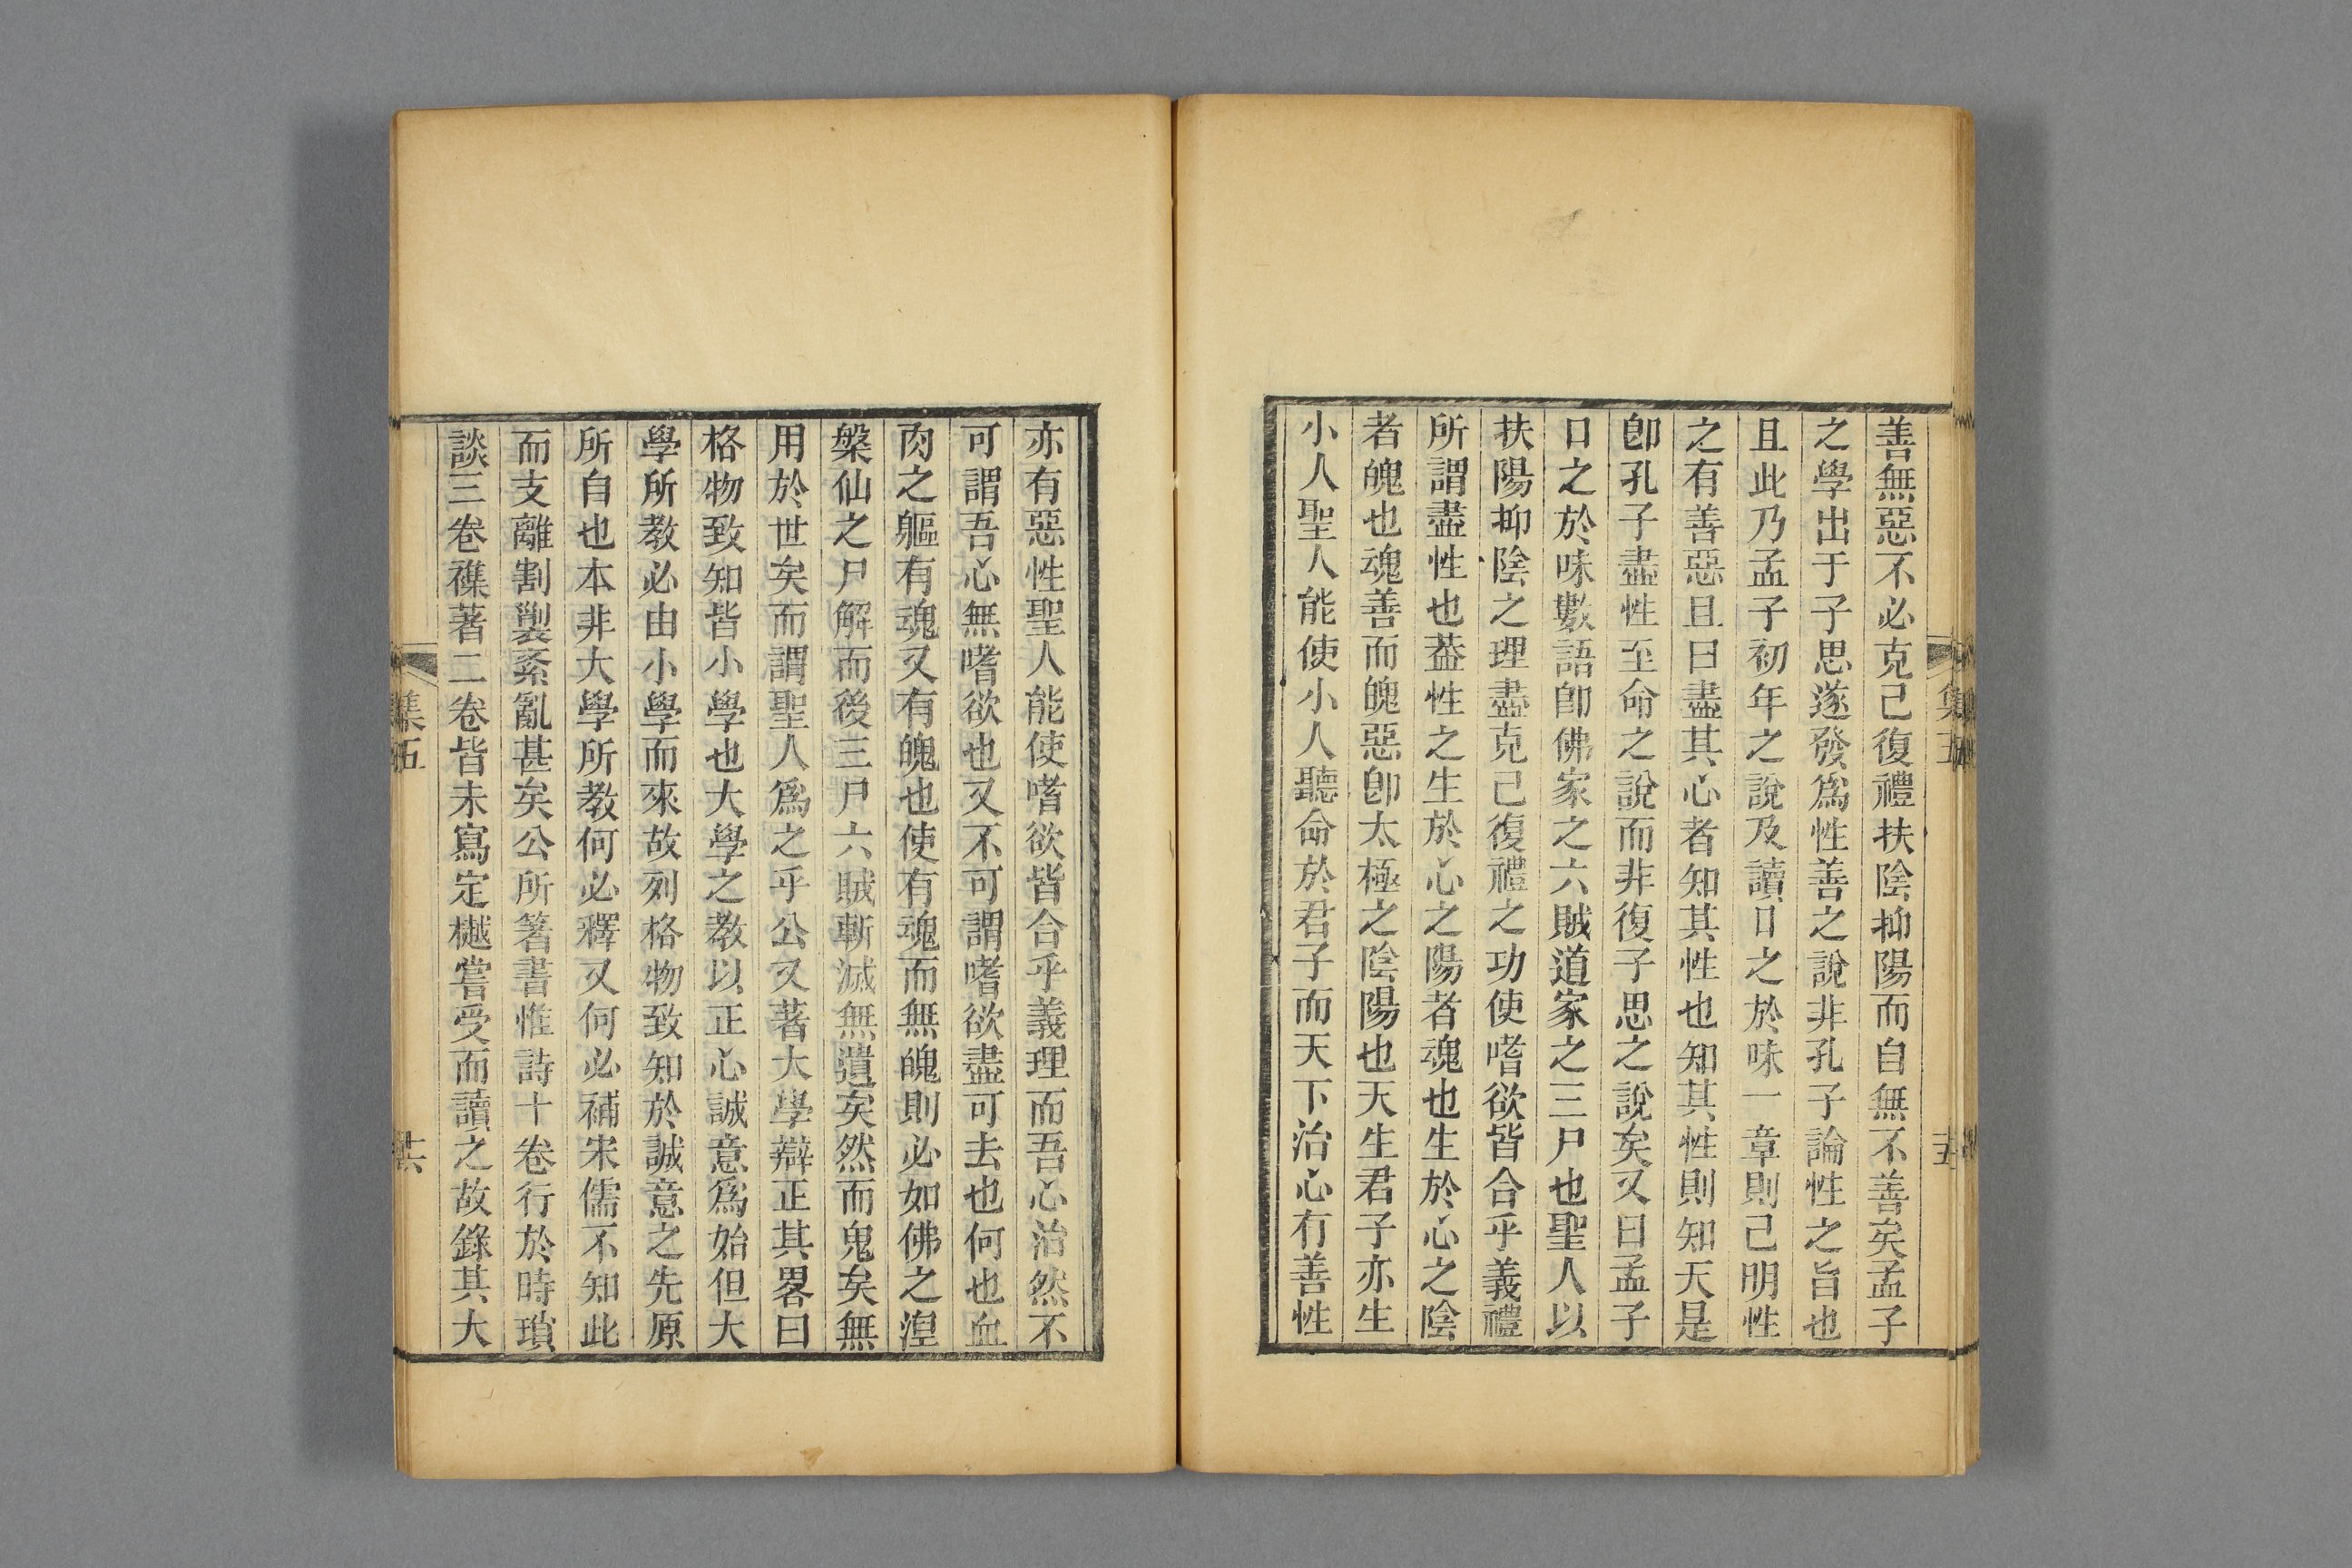 善無惡不必克己復禮扶陰抑陽而自無不善矣孟子
之學出于子思遂發爲性善之說非孔子論性之旨也
且此乃孟子初年之說及讀口之於味一章則己明性
之有善惡且曰盡其心者知其性也知其性則知天是
卽孔子盡性至命之說而非復子思之說矣又曰孟子
口之於味數語卽佛家之六賊道家之三尸也聖人以
扶陽抑陰之理盡克己復禮之功使嗜欲皆合乎義禮
所謂盡性也葢性之生於心之陽者魂也生於心之陰
者魄也魂善而魄惡卽太極之陰陽也天生君子亦生
小人聖人能使小人聽命於君子而天下治心有善性
亦有惡性聖人能使嗜欲皆合乎義理而吾心治然不
可謂吾心無嗜欲也又不可謂嗜欲盡可去也何也血
肉之軀有魂又有魄也使有魂而無魄則必如佛之湼
槃仙之尸解而後三尸六賊斬滅無遺矣然而鬼矣無
用於世矣而謂聖人爲之乎公又著大學辯正其畧曰
格物致知皆小學也大學之教以正心誠意爲始但大
學所教必由小學而來故列格物致知於誠意之先原
所自也本非大學所教何必釋又何必補宋儒不知此
而支離割製紊亂甚矣公所箸書惟詩十卷行於時瑣
談三卷襍著二卷皆未寫定樾嘗受而讀之故錄其大
集五
五
集五
六